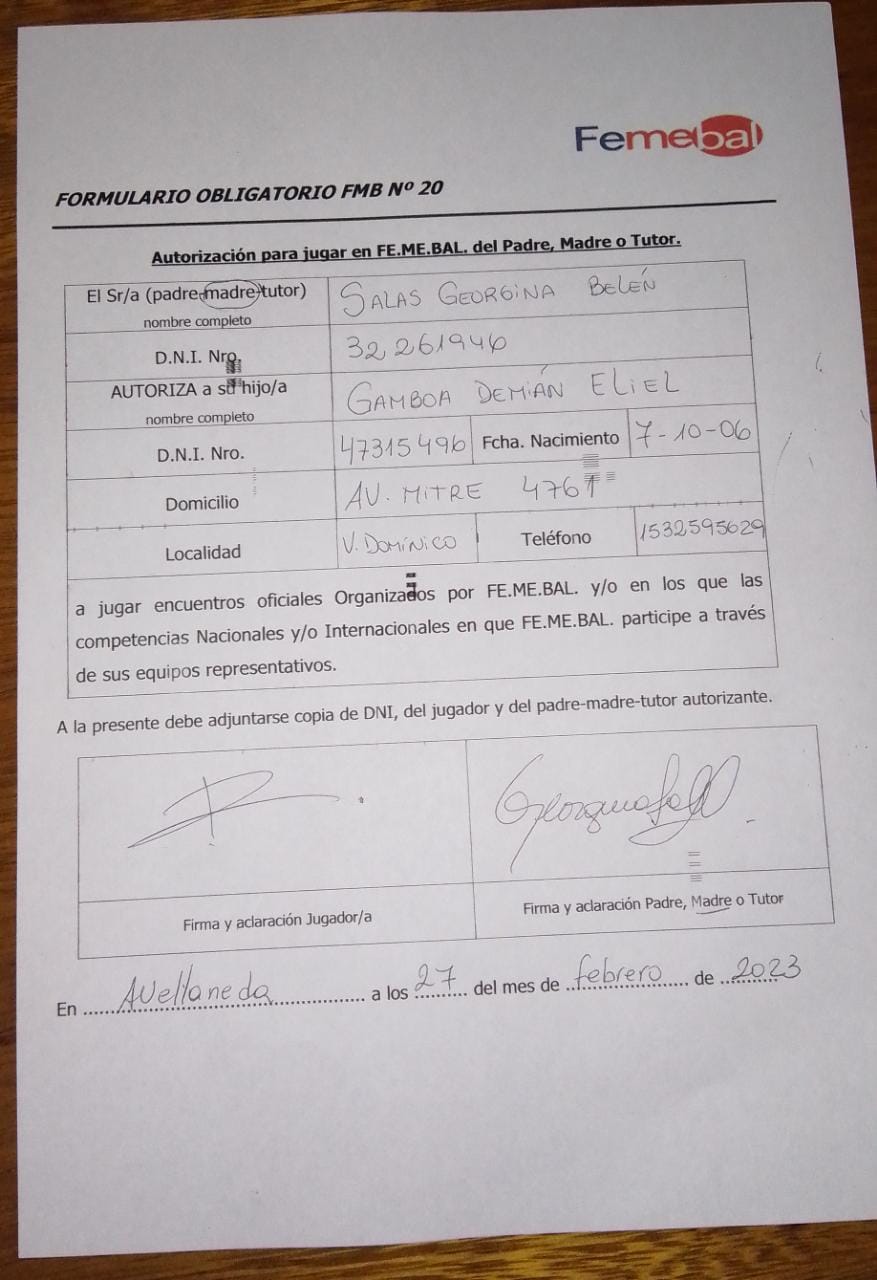 Femebal
FORMULARIO OBLIGATORIO FMB Nº 20
Autorización para jugar en FE.ME.BAL. del Padre, Madre o Tutor.
El Sr/a (padre-madre-tutor) SALAS GEORGINA BELÉN
nombre completo
D.N.I. Nro. 32 261946
AUTORIZA a su hijo/a GAMBOA DEMIÁN ELIEL
nombre completo
D.N.I. Nro. 47315496 Fcha. Nacimiento 7-10-06
Domicilio AV. MITRE 4761
Localidad V. DOMÍNICO Teléfono 1532595629
a jugar encuentros oficiales Organizados por FE.ME.BAL. y/o en los que las
competencias Nacionales y/o Internacionales en que FE.ME.BAL. participe a través
de sus equipos representativos.
A la presente debe adjuntarse copia de DNI, del jugador y del padre-madre-tutor autorizante.
Firma y aclaración Jugador/a Firma y aclaración Padre, Madre o Tutor
En Avellaneda a los 27 del mes de febrero de 2023